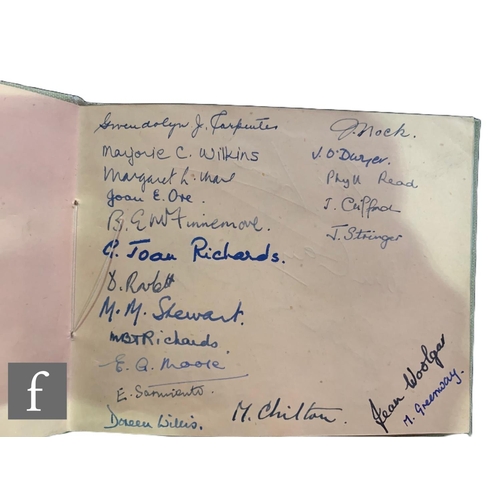 Gwendolyn J. Carpenter
Marjorie C. Wilkins
Margaret L.
Joan E. Ore.
B. E. M. Finnemore.
C. Joan Richards.
D.
M. M. Stewart.
Richards.
E. Q. Moore
E. Sarmiento.
Doreen Willis.
J. Nock.
J. O'Dwyer.
Phyll Read
J. Clifford
J. Stringer
M. Chilton.
Jean Woolgar
M. Greenway.
f